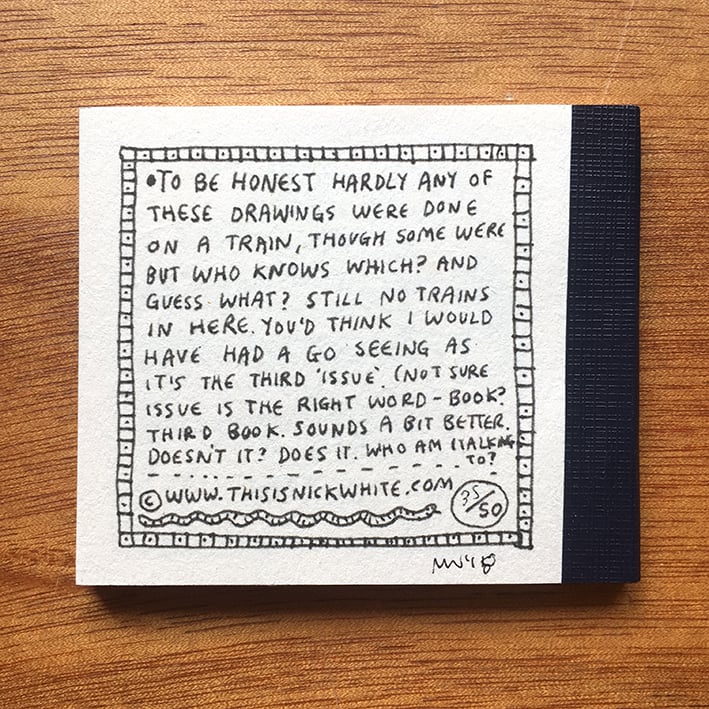 •TO BE HONEST HARDLY ANY OF
THESE DRAWINGS WERE DONE
ON A TRAIN, THOUGH SOME WERE
BUT WHO KNOWS WHICH? AND
GUESS WHAT? STILL NO TRAINS
IN HERE. YOU'D THINK I WOULD
HAVE HAD A GO SEEING AS
IT'S THE THIRD 'ISSUE'. (NOT SURE
ISSUE IS THE RIGHT WORD - BOOK?
THIRD BOOK. SOUNDS A BIT BETTER.
DOESN'T IT? DOES IT. WHO AM I TALKING
TO?
© WWW.THISISNICKWHITE.COM
35/50
NW'18